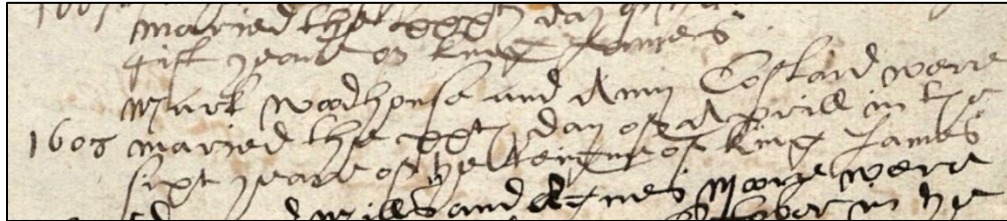 maried the xxxth day of
fift yeare of king James
Mark Woodhouse and Ann Costard were
1608 maried the xxth day of Aprill in the
sixt yeare of the Reigne of king James
Mills and Agnes Moore were
in the